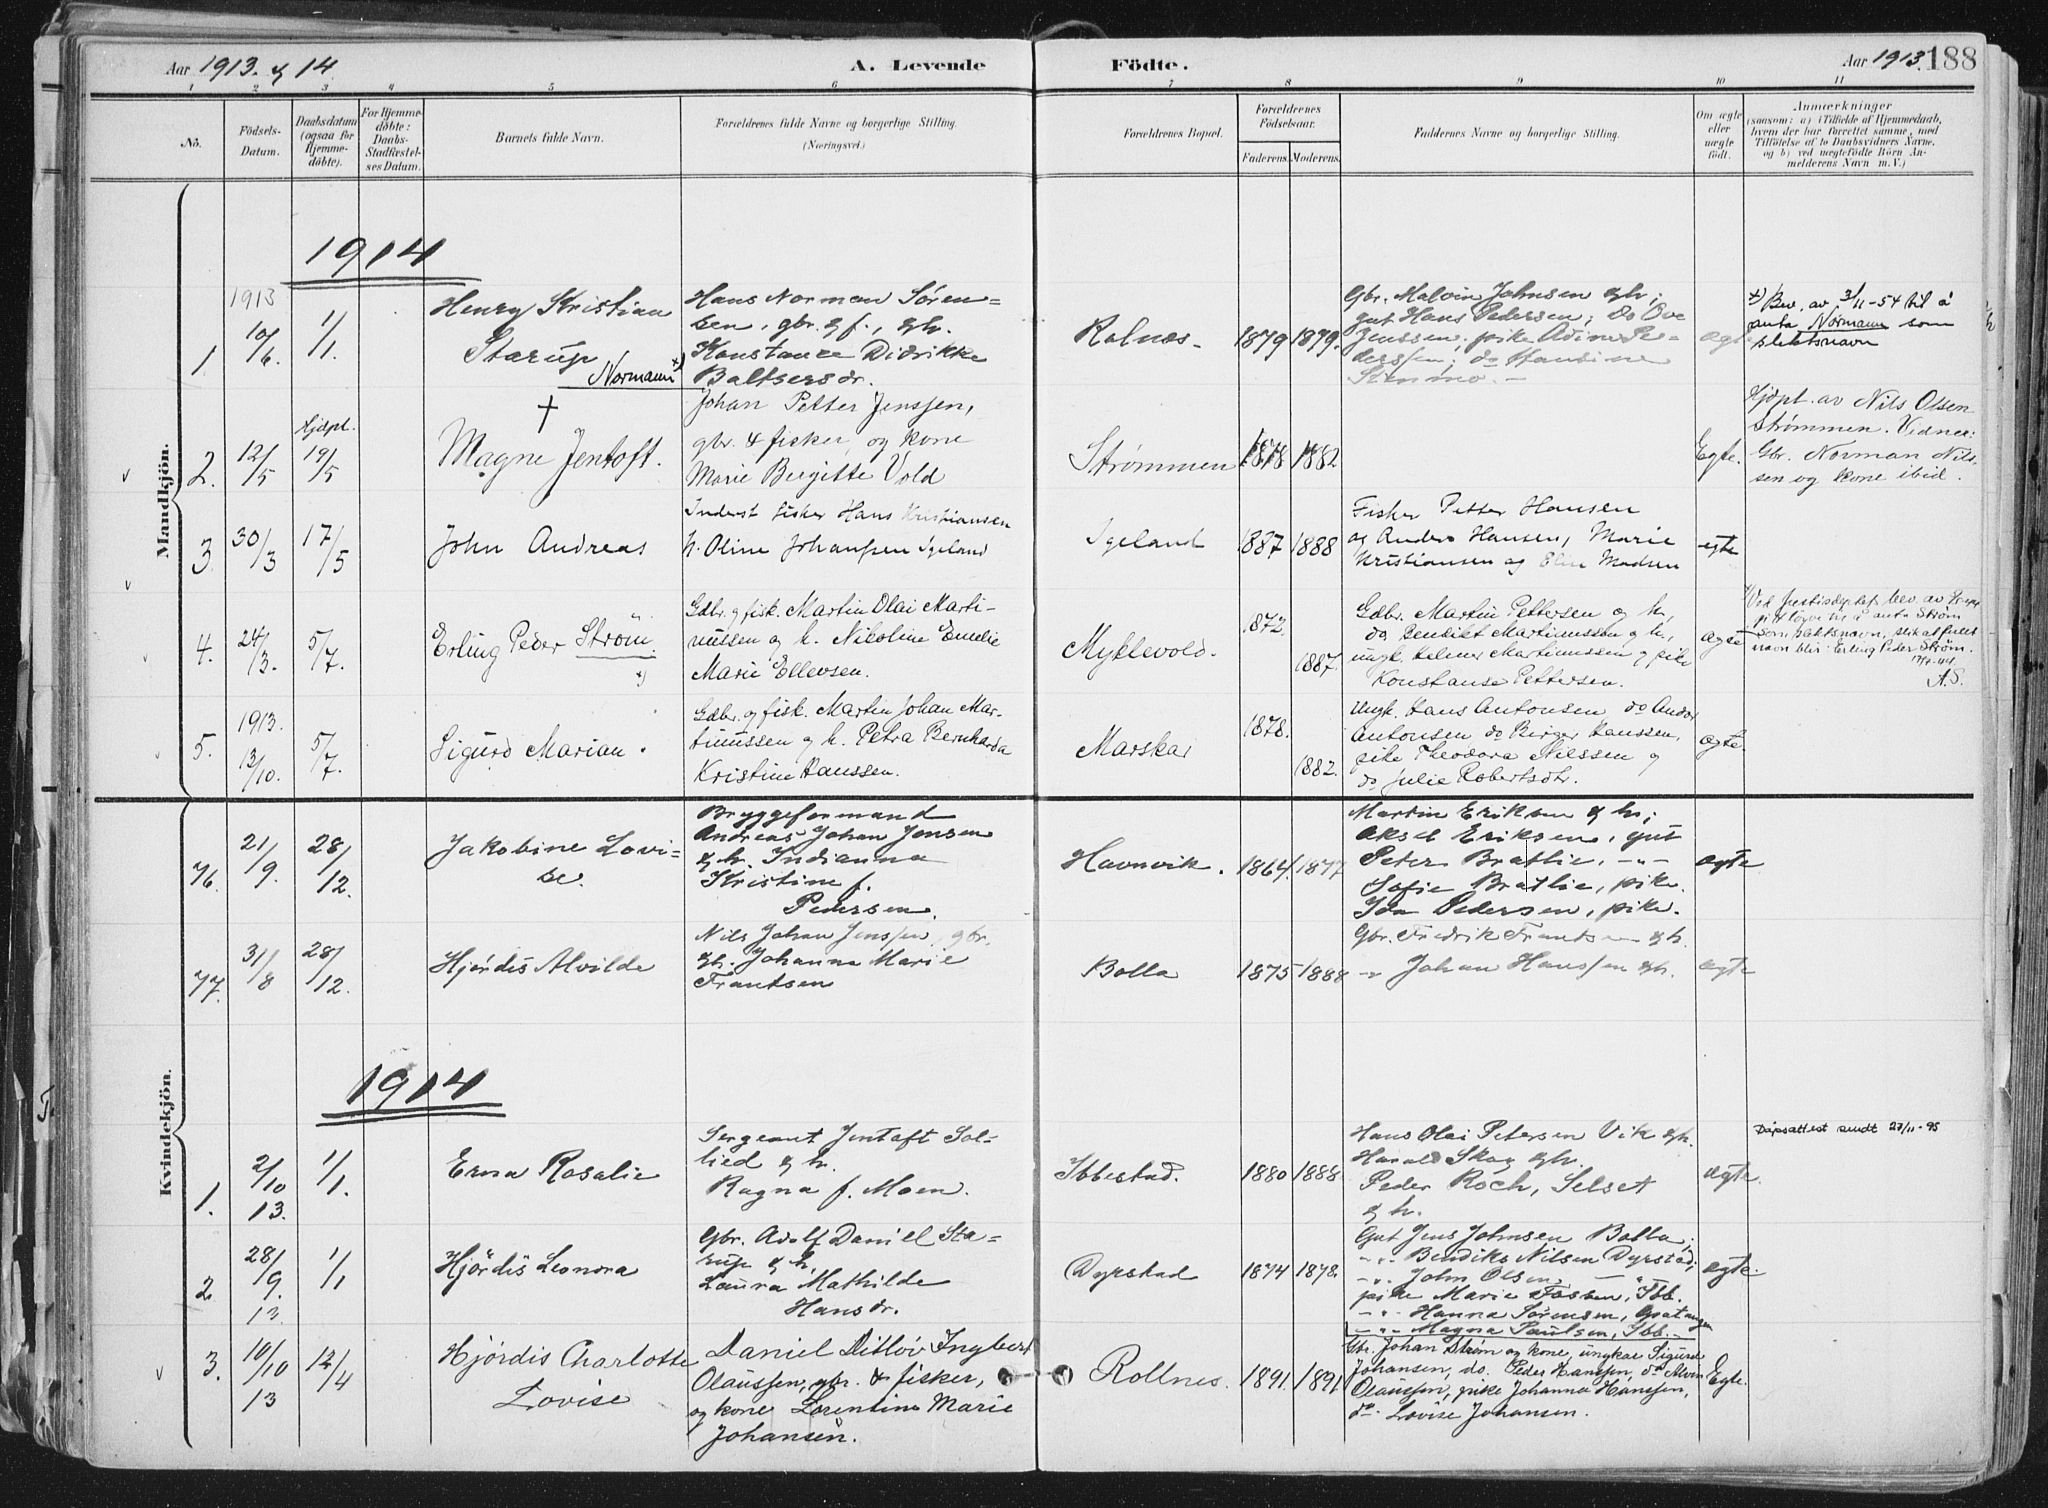 Aar 1913. & 14.
A. Levende
Födte.
Aar 1913.
188
1 2 3 4 5 6 7 8 9 10 11
No.
Födsels-Datum.
Daabsdatum (ogsaa for Hjemmedöbte).
For Hjemmedöbte: Daabs-Stadfæstelses Datum.
Barnets fulde Navn.
Forældrenes fulde Navne og borgerlige Stilling.
(Næringsvei.)
Forældrenes Bopæl.
Forældrenes Födselsaar.
Faderens. Moderens.
Faddernes Navne og borgerlige Stilling.
Om ægte eller uægte födt.
Anmærkninger
(saasom: a) i Tilfælde af Hjemmedaab,
hvem der har forrettet samme, med
Tilföielse af to Daabsvidners Navne,
og b) ved uægtefödte Börn Anmelderens Navn m. V.)
Mandkjön.
1914
1913
1
10/6.
1/1.
Henry Kristian
Starup
Normann x)
Hans Norman Søren=
sen, gbr. g f., gh.
Konstanze Didrikke
Baltsersdr.
Rolnæs.
1879
1879.
Gbr. Malvin Johnsen & h.;
gut Hans Pedersen; do Ove
Jenssen; pike Adine Pe-
derssen; do
ægte
x) Bev. av 3/11-54 til å
anta Normann som
slektsnavn
2.
12/5
Hjdpt.
19/5
†
Magne Jentoft.
Johan Petter Jenssen,
gbr. & fisker, og kone
Marie Bergitte Vold
Strømmen
1878
1882
Egte.
Hjdpt. av Nils Olsen
Strømmen. Vidner:
Gbr. Norman Nils-
sen og kone ibid.
3
30/3
17/5
John Andreas
Inderst fisker Hans Kristiansen
h. Oline Johanssen Igeland
Igeland
1887
1888
Fisker Petter Hansen
og Anders Hansen, Marie
Kristiansen og Elise Madsen
egte
4.
24/3.
5/7.
Erling Peder Strøm.
x)
Gdbr. g fisk. Martin Olai Marti-
nussen og h. Nikoline Emelie
Marie Ellevsen.
Myklevold.
1872.
1887.
Gdbr. Martin Pettersen og h,
do Benedikt Martinussen g h,
ungk. Helmer Martinussen g pike
Konstanse Pettersen.
ægte
som slektsnavn, slik at fulde
navn blir: Erling Peder Strøm.
A.S.
5.
1913.
13/10.
5/7.
Sigurd Marian.
Gdbr. og fisk. Martin Johan Mar-
tinussen g h. Petra Bernharda
Kristine Hanssen.
Marskar
1878.
1882.
Ungk. Hans Antonsen do Andor
Antonsen do Birger Hanssen,
pike Theodora Nilssen g
do Julie Robertsdtr.
ægte
Kvindekjön.
76.
21/9.
28/12.
Jakobine Lovi=
se.
Bryggeformand
Andreas Johan Jensen
& h. Indianna
Kristine f.
Pedersen.
Havnvik.
1864.
1877
Martin Eriksen & h;
Aksel Eriksen, gut
Peter Bratlie, -"-
Sofie Bratlie, pike.
Ida Pedersen, pike.
ægte
77.
31/8
28/12.
Hjørdis Alvilde
Nils Johan Jenssen, gbr.
gh. Johanna Marie
Frantsen
Bolla
1875
1888
Gbr. Fredrik Frantsen & h.
-"- Johan Hanssen & h.
ægte
1914
1.
2/10
13.
1/1.
Erna Rosalie
Sergeant Jentoft Sol=
lied & h.
Ragna f. Moen.
Ibbestad.
1880
1888.
Hans Olai Petersen Vik & h.
Harald Skog & h.
Peder Roch, Selset
& h.
ægte.
Dåpsattest sendt 27/11-95
2
28/9.
13.
1/1
Hjördis Leonora
Gbr. Adolf Daniel Sta=
rup & h,
Laura Mathilde
Hansdr.
Dyrstad
1874
1878.
Gut Jens Johnsen Bolla;
-"- Bendiks Nilsen Dyrstad;
-"- John Olsen -"-
pike Marie Fossen, Ibb.
-"- Hanna Sørensen,
-"- Magna Paulsen, Ibb.
ægte.
3.
10/10
13
12/4
Hjördis Charlotte
Lovise
Daniel Ditlöv Ingbert
Olaussen, gbr. & fisker,
og kone Lorentine Marie
Johansen.
Rollnes.
1891.
1891.
Gbr. Johan Strøm og kone, ungkar Sigurd
Johansen, do. Peder Hanssen, do Alvin
Olaussen, pike Johanna Hanssen,
do. Lovise Johansen.
Egte.